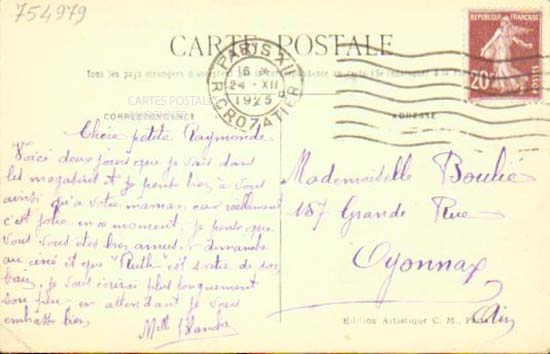 754979
CARTE POSTALE
REPUBLIQUE FRANÇAISE
20
PARIS XII
16
24 - XII
1925
R. CROZATIER
Tous les pays étrangers n'acceptent pas
CARTES POSTALES
CORRESPONDANCE
ADRESSE
Chère petite Raymonde
Voici deux jours que je vais dans
les magasins et je pense bien à vous
ainsi qu'à votre maman, car réellement
c'est jolie en ce moment. je pense que
vous vous êtes bien amusé dimanche
au ciné et que "Ruth" est sortie de son
bain, je vous écrirai plus longuement
sou peu en attendant je vous
embrasse bien
Melle Blanche
Mademoiselle Boulié
187 Grande Rue
Oyonnax
Ain
Edition Artistique C. M., Paris